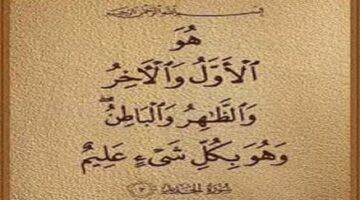 بسم الله الرحمن الرحيم
هُوَ
ٱلْأَوَّلُ وَٱلْـَٔاخِرُ
وَٱلظَّـٰهِرُ وَٱلْبَاطِنُ ۖ
وَهُوَ بِكُلِّ شَىْءٍ عَلِيمٌ
سورة الحديد ٣